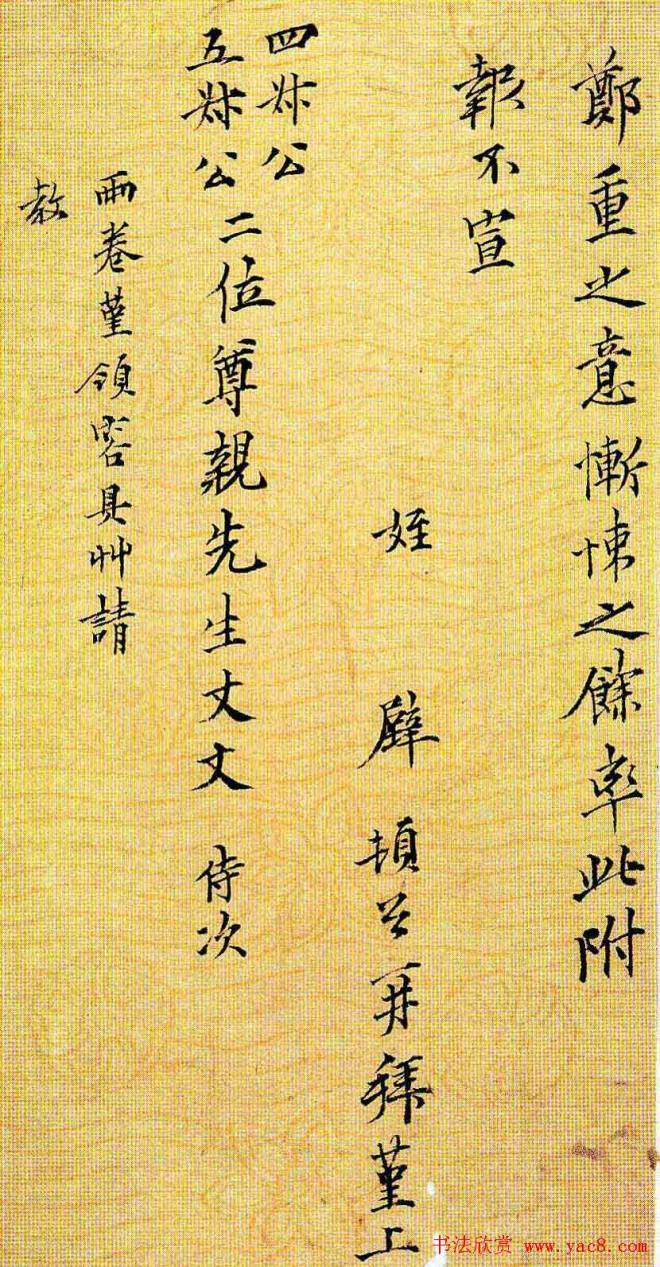 鄭重之意慚悚之餘率此附
報不宣
姪 璧 頓首再拜堇上
四尗公
五尗公二位尊親先生丈丈 侍次
兩卷堇領容具艸請
教
书法欣赏 www.yac8.com